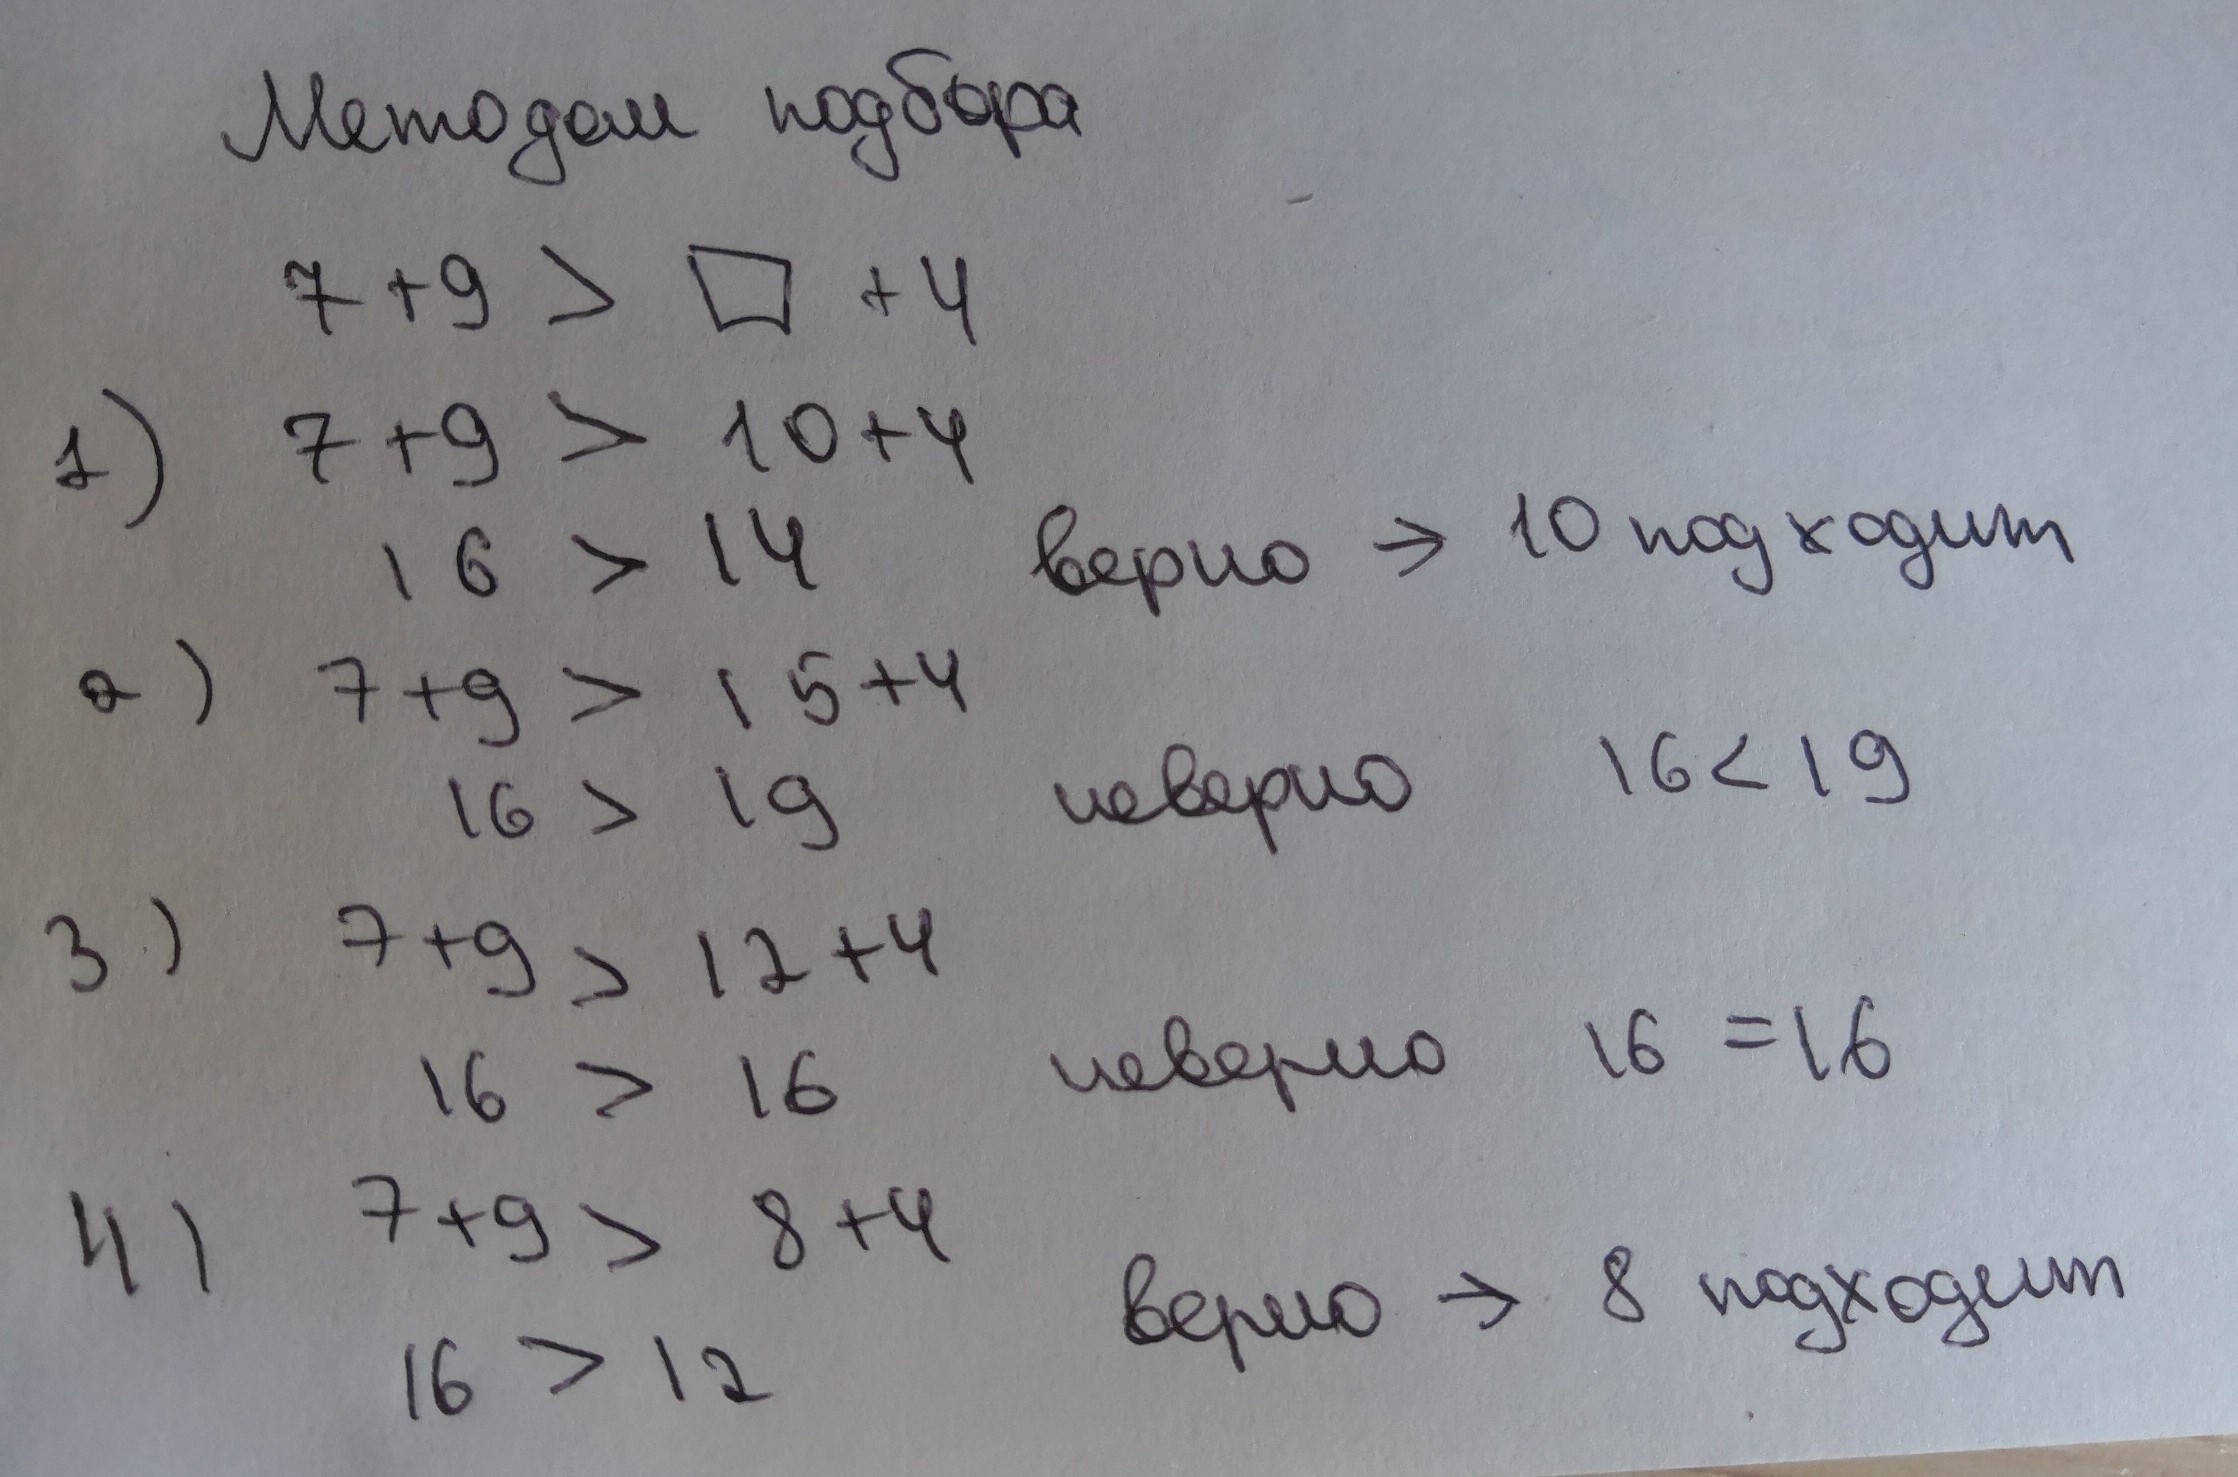 Методом подбора
7+9 > □ +4
1) 7+9 > 10+4
16 > 14 верно → 10 подходит
2) 7+9 > 15+4
16 > 19 неверно 16 < 19
3) 7+9 > 12+4
16 > 16 неверно 16 = 16
4) 7+9 > 8+4
16 > 12 верно → 8 подходит